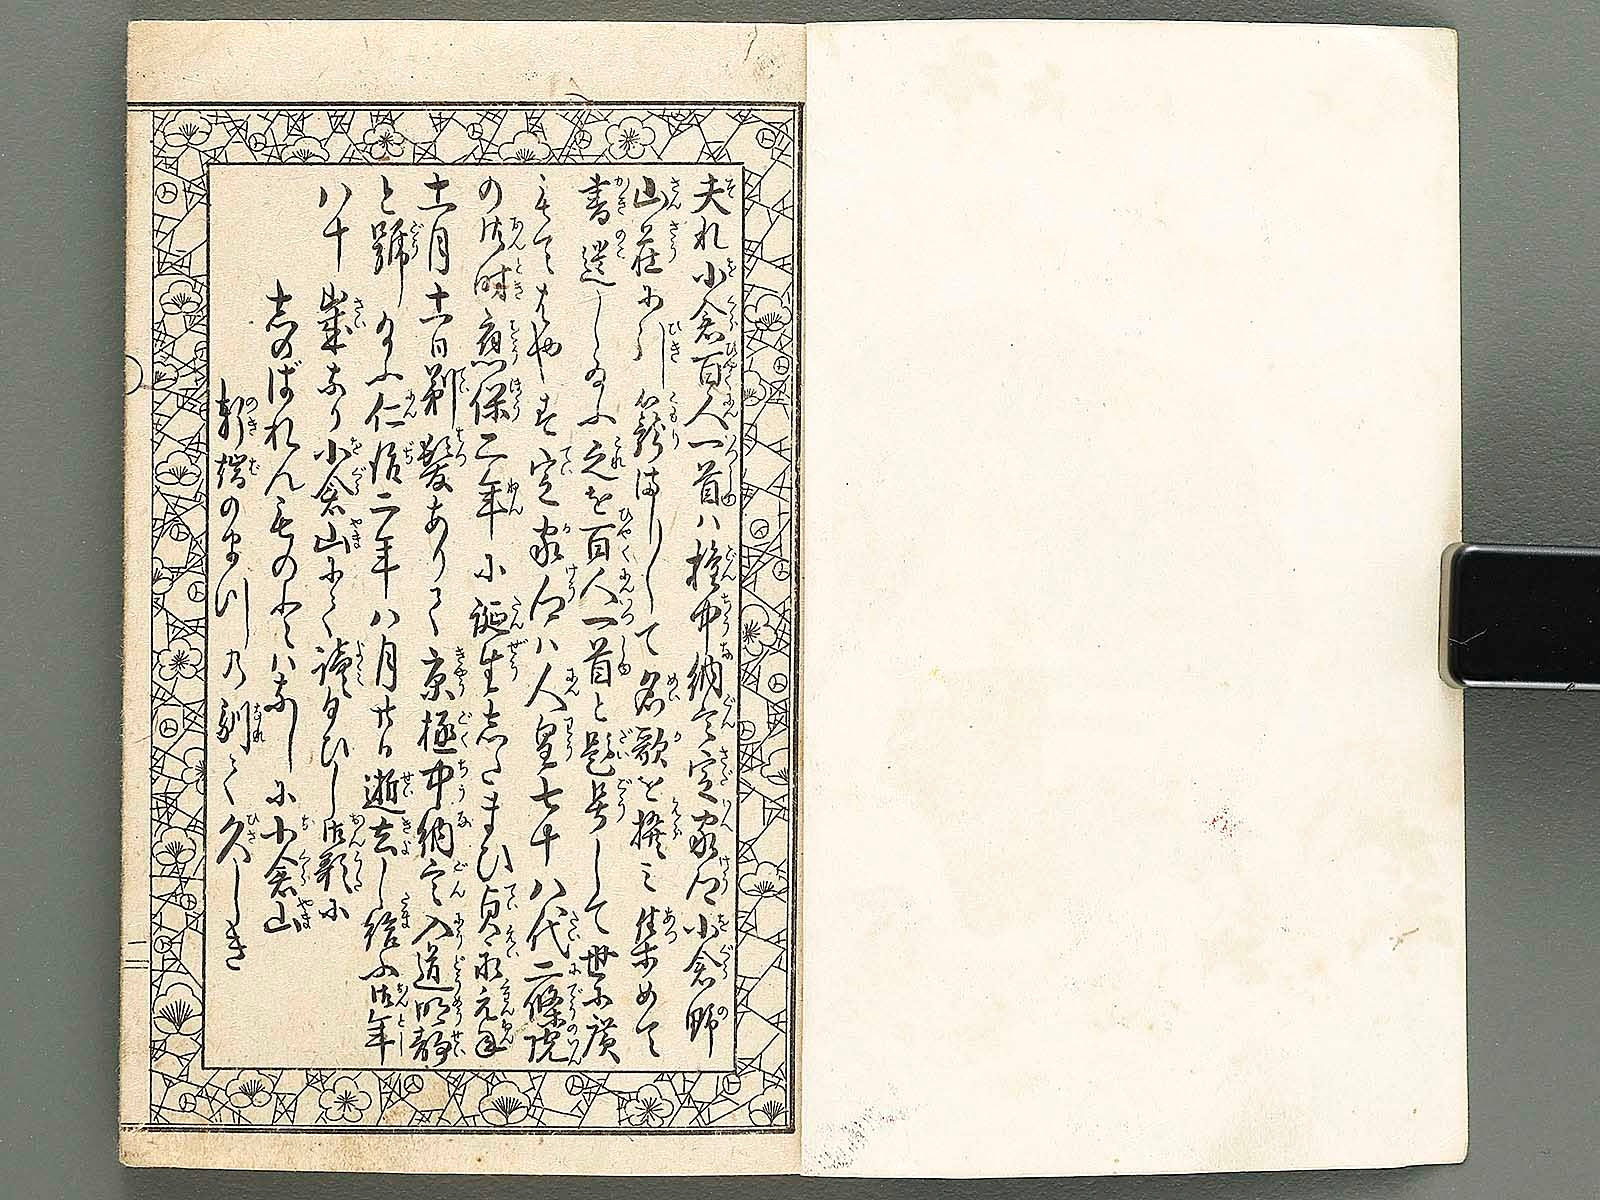 夫れ小倉百人一首ハ権中納言定家卿小倉野
山荘に引籠ましして名歌を撰ミ集めて
書遺しゐふ之を百人一首と題号して世に廣
定家卿ハ人皇七十八代二條院
の御時應保二年に誕生志たまひ貞永元年
十二月十一日剃髪ありて京極中納言入道明静
と號すふ仁治二年八月廿日逝去し給ふ御年
八十歳なり小倉山にて讀給ひし御歌に
志のばれんものともなしに小倉山
軒端のまつの馴て久しき
二